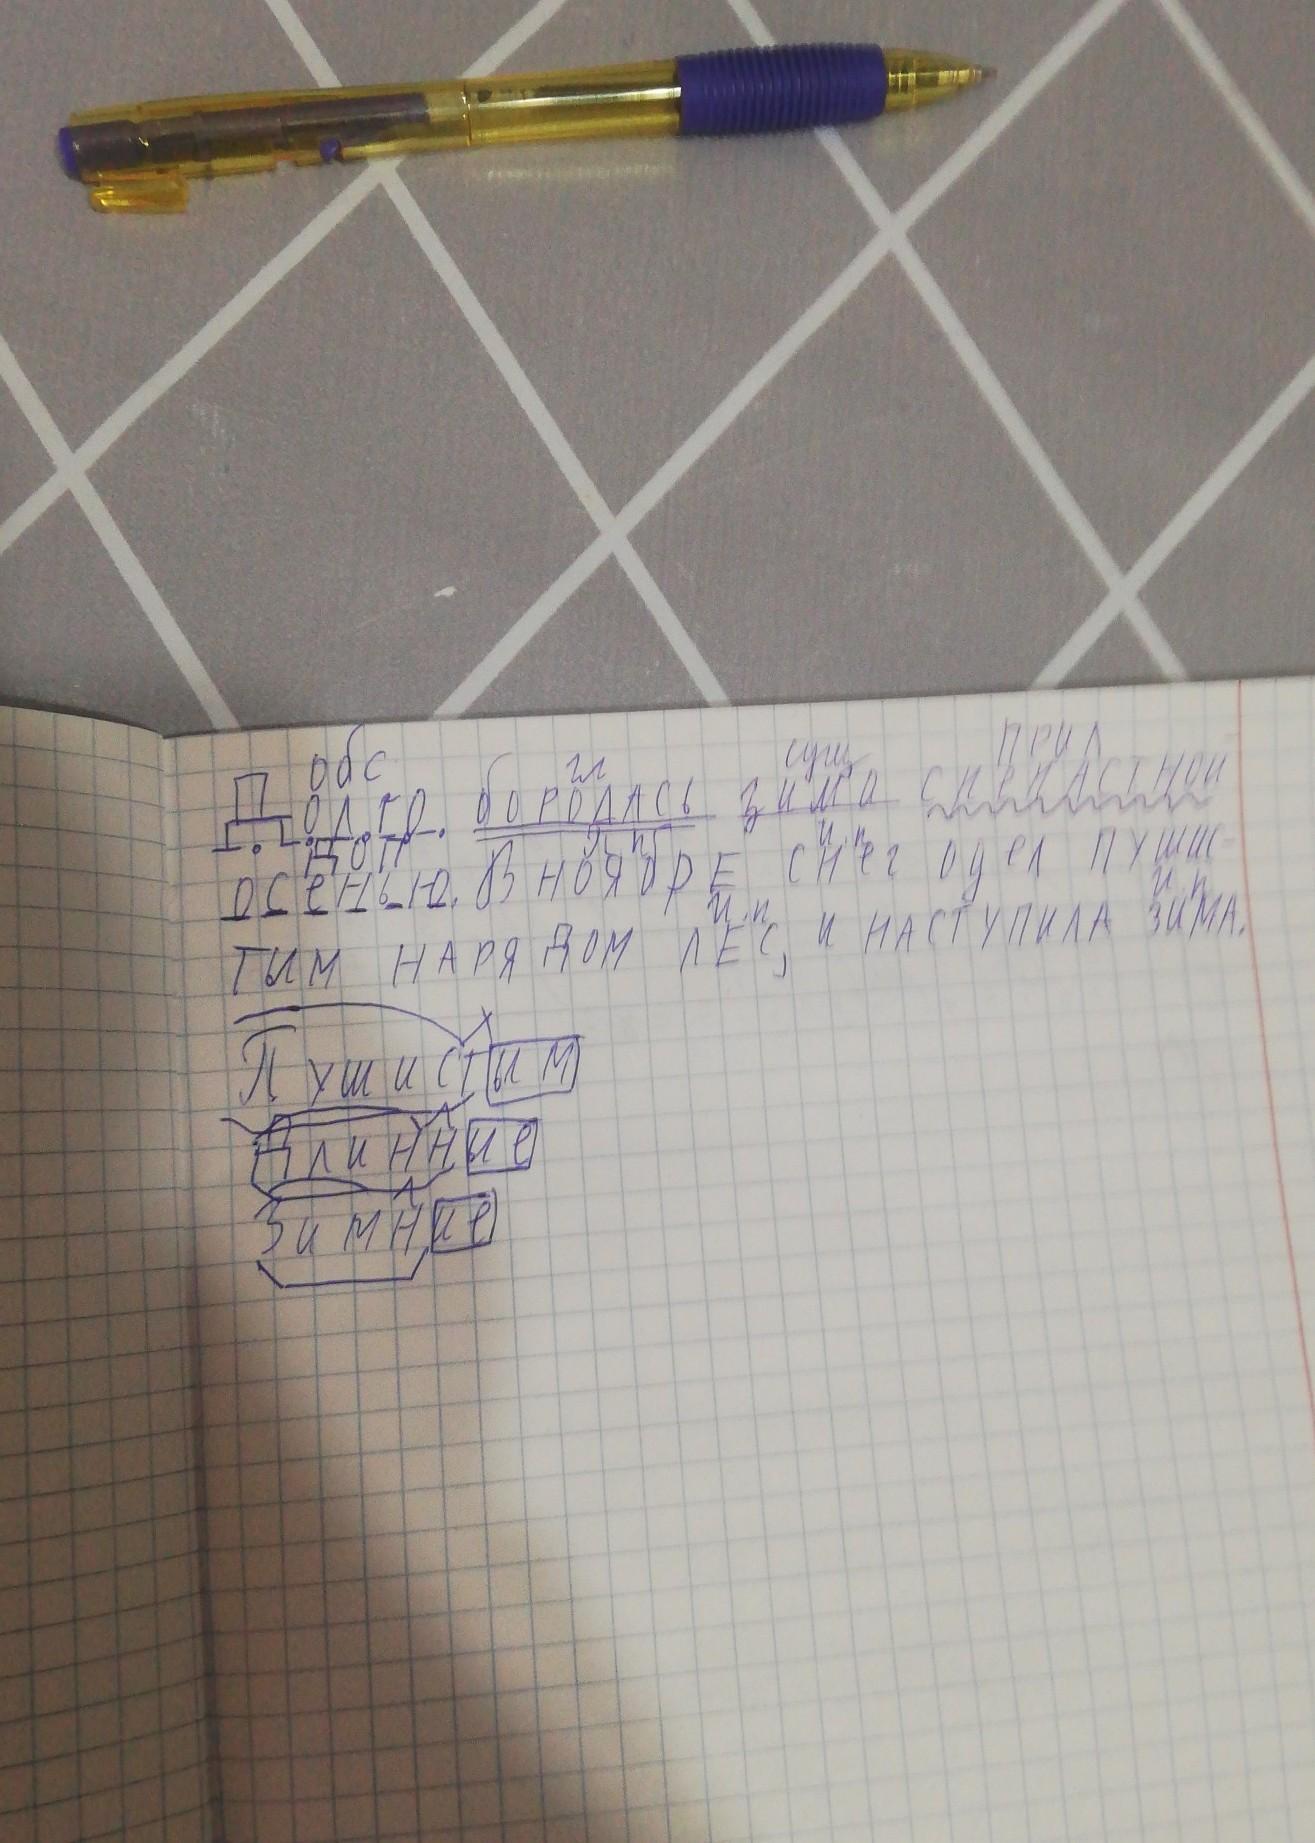 обс гл сущ прил
Долго боролась зима с ненастной
доп П.п И.п
осенью. В ноябре снег одел пушис-
И.п И.п
тым нарядом лес, и наступила зима.
Пушистым
Длинние
Зимние